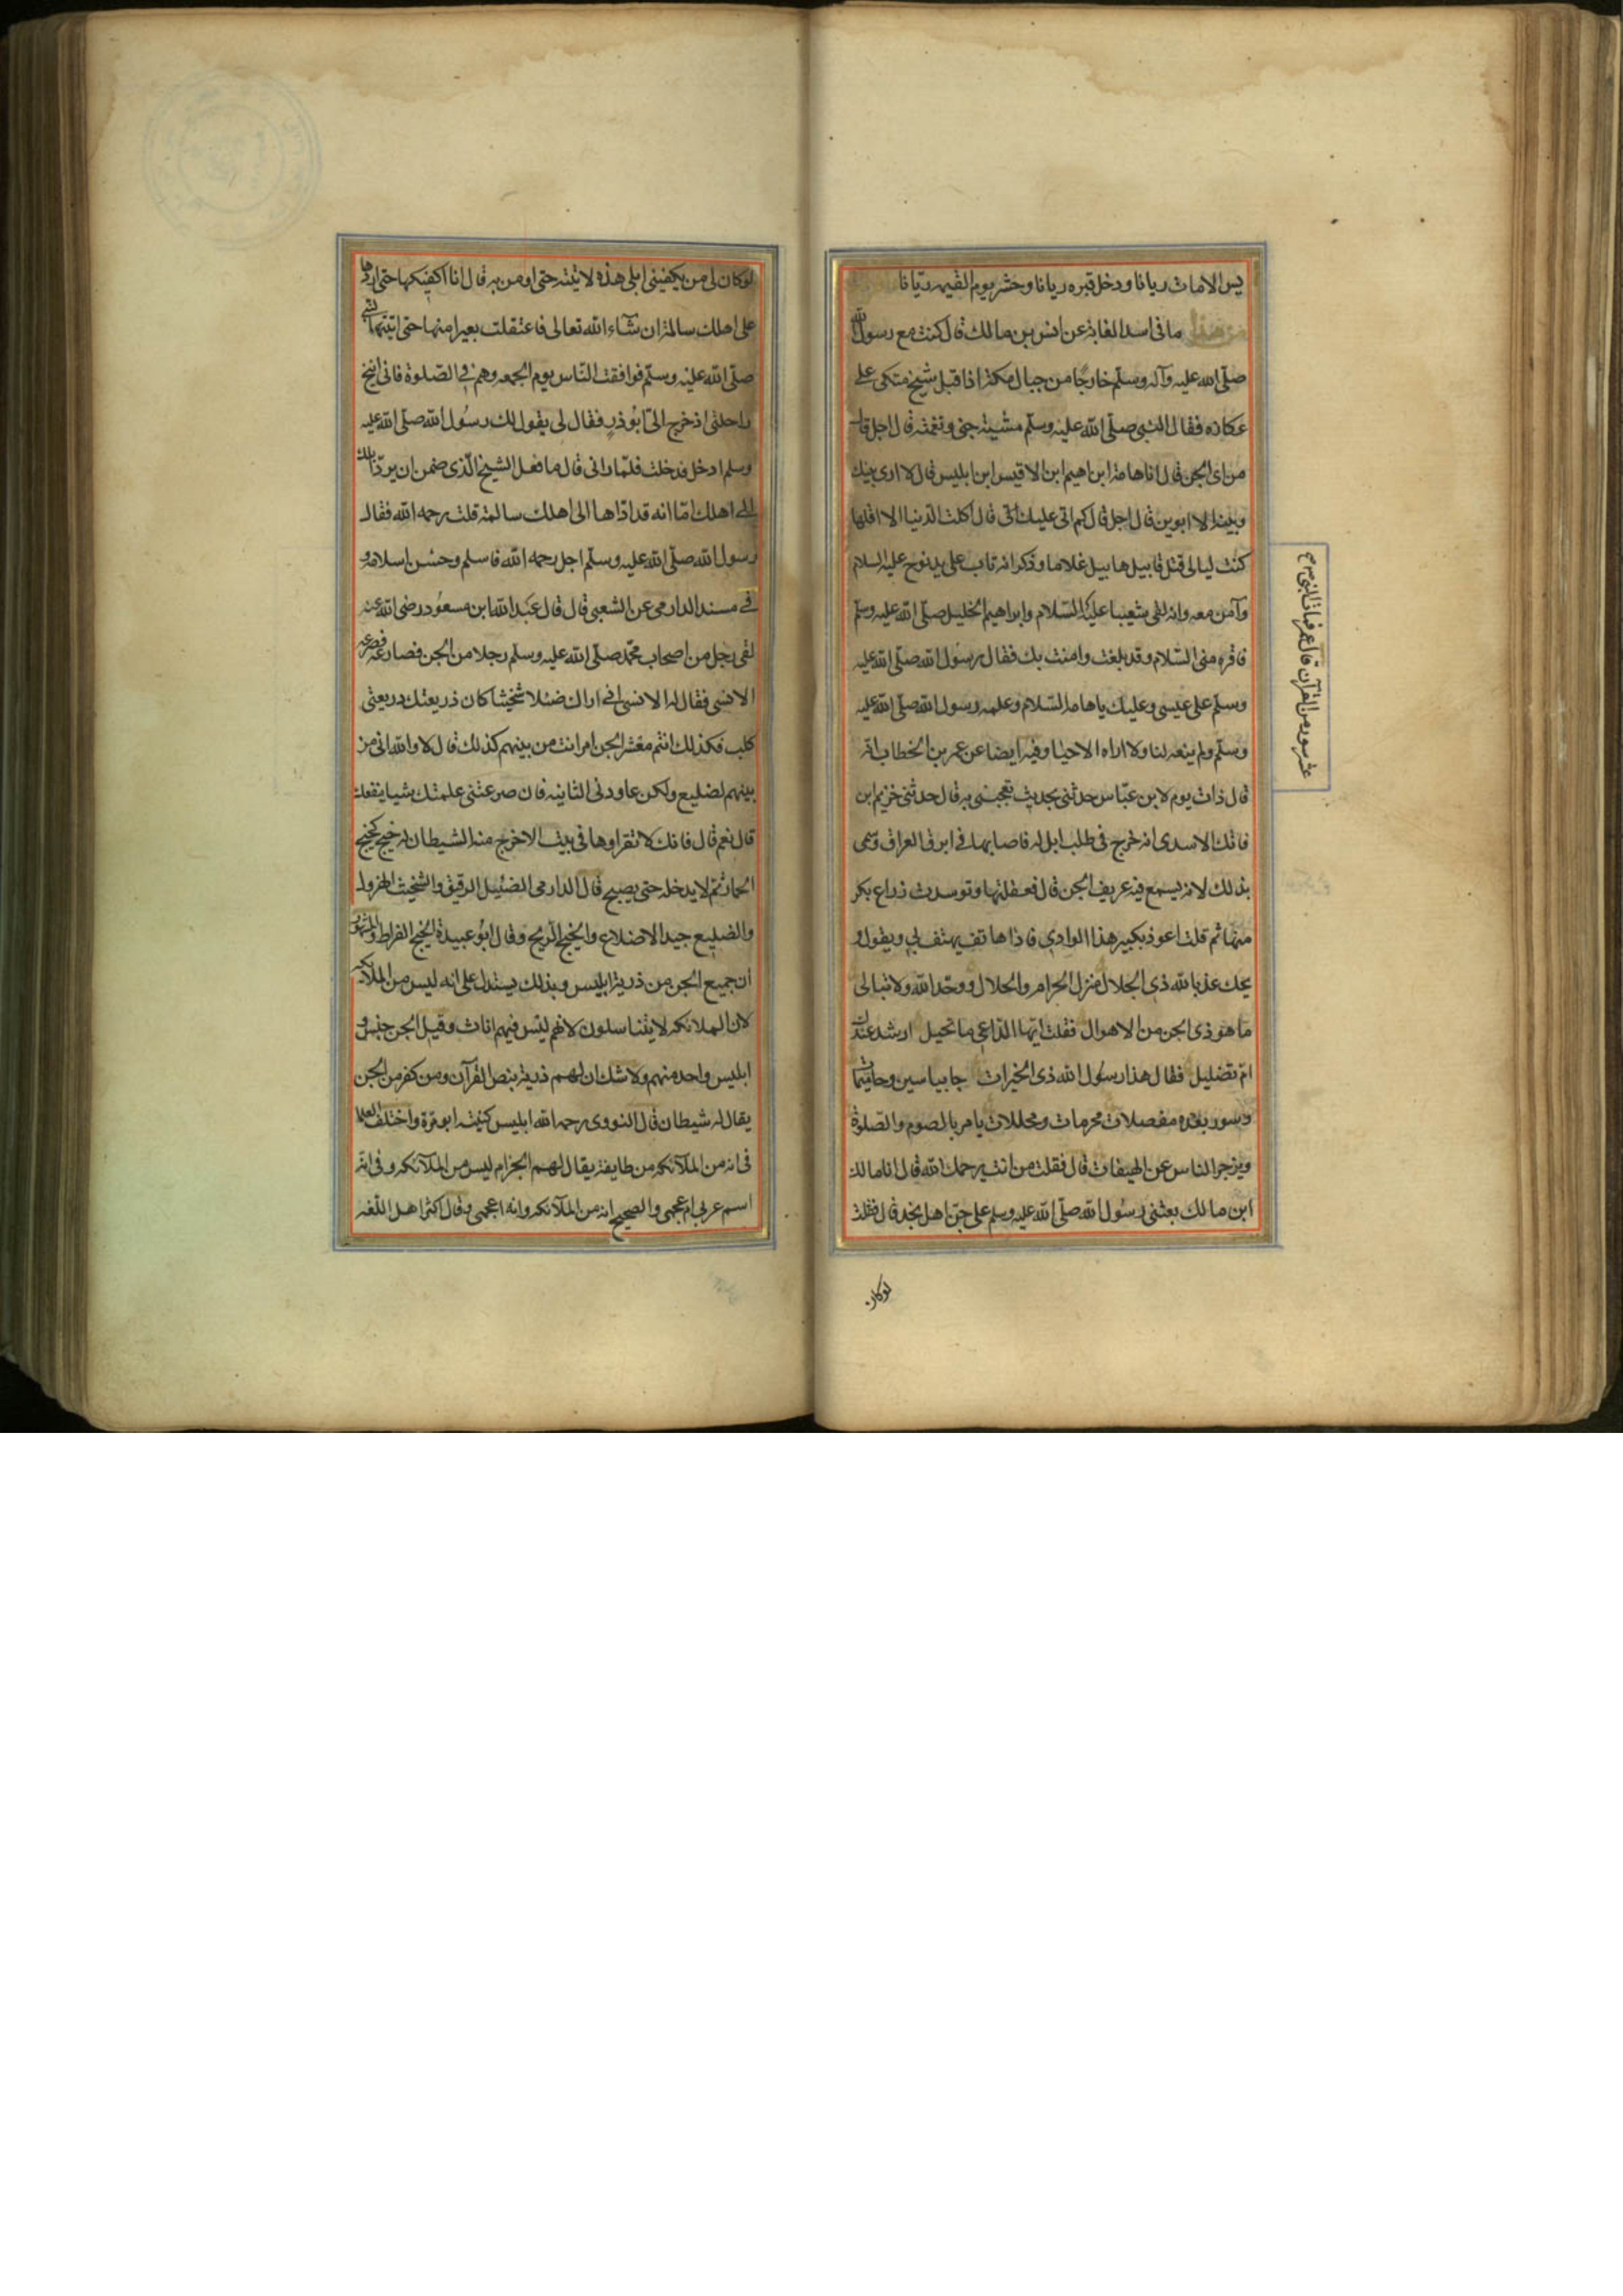 يس الامات ريانا ودخل قبره ريانا وحشر يوم القيمه ريّانا
من هذا ما فى اسد الغابة عن انس بن مالك قال كنت مع رسول الله
صلّى الله عليه وآله وسلّم خارجًا من جبال مكة اذا قبل شيخ متكى على
عكازه فقال النبى صلّى الله عليه وسلّم مشية جنى ونغمته قال اجل قال
من اى الجن قال انا هامة ابن اهيم ابن الاقيس ابن ابليس قال لا ارى بينك
وبينه الا ابوين قال اجل قال كم اتى عليك قال اكلت الدنيا الا اقلها
كنت ليالى قتل قابيل هابيل غلاما وذكر انه تاب على يد نوح عليه السلام
وآمن معه وانه لقى شعيبا عليه السّلام وابراهيم الخليل صلّى الله عليه وسلّم
فاقره منى السّلام وقد بلغت وامنت بك فقال رسول الله صلّى الله عليه
وسلّم على عيسى وعليك ياهامه السّلام وعلمه رسول الله صلّى الله عليه
وسلّم ولم ينعه لنا ولا اراه الا حيا وفيه ايضا عن عمر بن الخطاب انّه
قال ذات يوم لابن عبّاس حدثنى بحديث تعجبنى به قال حدثنى خزيم ابن
فاتك الاسدى انه خرج فى طلب ابل له فاصابها فى ابرق العراق وسمى
بذلك لانه يسمع فيه عزيف الجن قال فعقلتها وتوسدت ذراع بكر
منها ثم قلت اعوذ بكبير هذا الوادى فاذا هاتف يهتف لى ويقول و
يحك عذ بالله ذى الجلال منزل الحرام والحلال ووحّد الله ولا تبالى
ما هو ذى الجن من الاهوال فقلت ايّها الدّاعى ما تحيل ارشد عندك
ام تضليل فقال هذا رسول الله ذى الخيرات جا بياسين وحاميمات
وسور بعده مفصلات محرمات ومحللات يامر بالصوم والصّلوة
ويزجر الناس عن الهيفات قال فقلت من انت يرحمك الله قال انا مالك
ابن مالك بعثنى رسول الله صلّى الله عليه وسلم على جنّ اهل نجد قال فقلت
لوكان
عشر سور من القرآن قال عمر فمات النبى ص ح
لوكان لى من يكفينى ابلى هذه لاتيته حتى اومن به قال انا اكفيكها حتى اردها
على اهلك سالمة ان شآء الله تعالى فاعتقلت بعيرا منها حتى اتيت النبى
صلّى الله عليه وسلّم فوافقت النّاس يوم الجمعه وهم فى الصّلوة فانى انيخ
راحلتى اذ خرج الىّ ابوذر فقال لى يقول لك رسول الله صلّى الله عليه
وسلم ادخل فدخلت فلمّا رانى قال ما فعل الشيخ الّذى ضمن ان يردّ ابلك
الى اهلك امّا انه قد ادّاها الى اهلك سالمة قلت رحمه الله فقال
رسول الله صلّى الله عليه وسلّم اجل رحمه الله فاسلم وحسن اسلامه و
فى مسند الدارمى عن الشعبى قال قال عبد الله ابن مسعود رضى الله عنه
لقى رجل من اصحاب محمّد صلّى الله عليه وسلم رجلا من الجن فصارعه فصرعه
الانسى فقال له الانسى انى اراك ضئلا شخيتا كان ذريعتك ذريعتى
كلب فكذلك انتم معشر الجن ام انت من بينهم كذلك قال لا والله انى من
بينهم لضليع ولكن عاودنى الثانيه فان صرعتنى علمتك شيا ينفعك
قال نعم قال فانك لا تقراوها فى بيت الا خرج منه الشيطان له خبج كخبج
الحمار ثم لا يدخله حتى يصبح قال الدارمى الضئيل الرقيق والشخيت المهزول
والضليع جيد الاضلاع والخبج الريح وقال ابو عبيدة الخبج الضراط والمشهور
ان جميع الجن من ذرية ابليس وبذلك يستدل على انه ليس من الملائكه
لان الملائكه لا يتناسلون لانهم ليس فيهم اناث وقيل الجن جنس و
ابليس واحد منهم ولا شك ان لهم ذرية بنص القرآن ومن كفر من الجن
يقال له شيطان قال النووى رحمه الله ابليس كنيته ابو مرة واختلف العلما
فى انه من الملآئكه من طايفة يقال لهم الجن ام ليس من الملآئكه وفى انّه
اسم عربى ام عجمى والصحيح انه من الملآئكه وانه اعجمى وقال اكثر اهل اللّغه